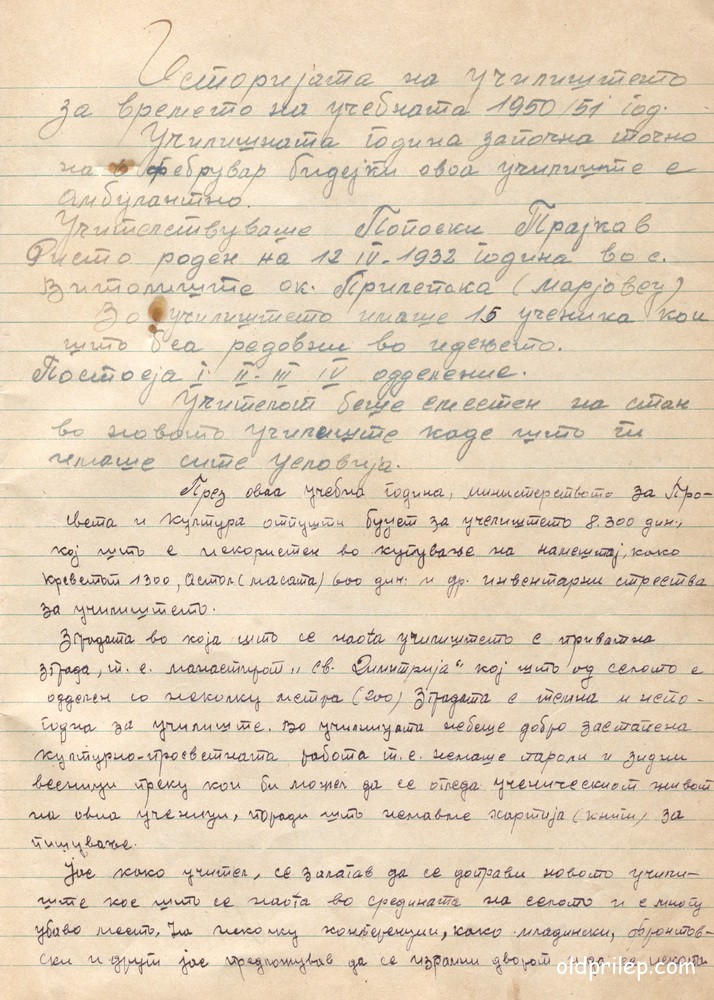 Историјата на училиштето
за времето на учебната 1950/51 год.
Училишната година започна точно
на фебрувар бидејќи овоа училиште е
амбулантно.
Учителствуваше Попоски Трајков
Ристо роден на 12 IV-1932 година во с.
Витолиште ок. Прилепска (Марјовец)
Во училиштето имаше 15 ученика кои
што беа редовни во идењето.
Постоеја I II-III IV одделение.
Учителот беше сместен на стан
во новото училиште каде што ги
имаше сите условија.
През овоа учебна година, министерството за Про-
света и култура отпушти буџет за училиштето 8.300 дин.,
кој што е искористен во купување на намештај, како
креветот 1300, Астол (масата) 600 дин. и др. инвентарни стрества
за училиштето.
Зградата во која што се наоѓа училиштето е приватна
зграда, т.е. манастирот „св. Димитрија" кој што од селото е
одделен со неколку метра (200) Зградата е темна и непо-
годна за училиште. Во училишата небеше добро застапена
културно-просветната работа т.е. немаше пароли и зидни
весници преку кои би можел да се огледа ученическиот живот
на овиа ученици, поради што немавме хартија (книги) за
пишување.
Јас како учител, се залагав да се доправи новото учили-
ште кое што се наоѓа во средината на селото и е многу
убаво место. На неколку конференции, како младински, фронтов-
ски и други јас предложував да се израмни дворот и да се
oldprilep.com